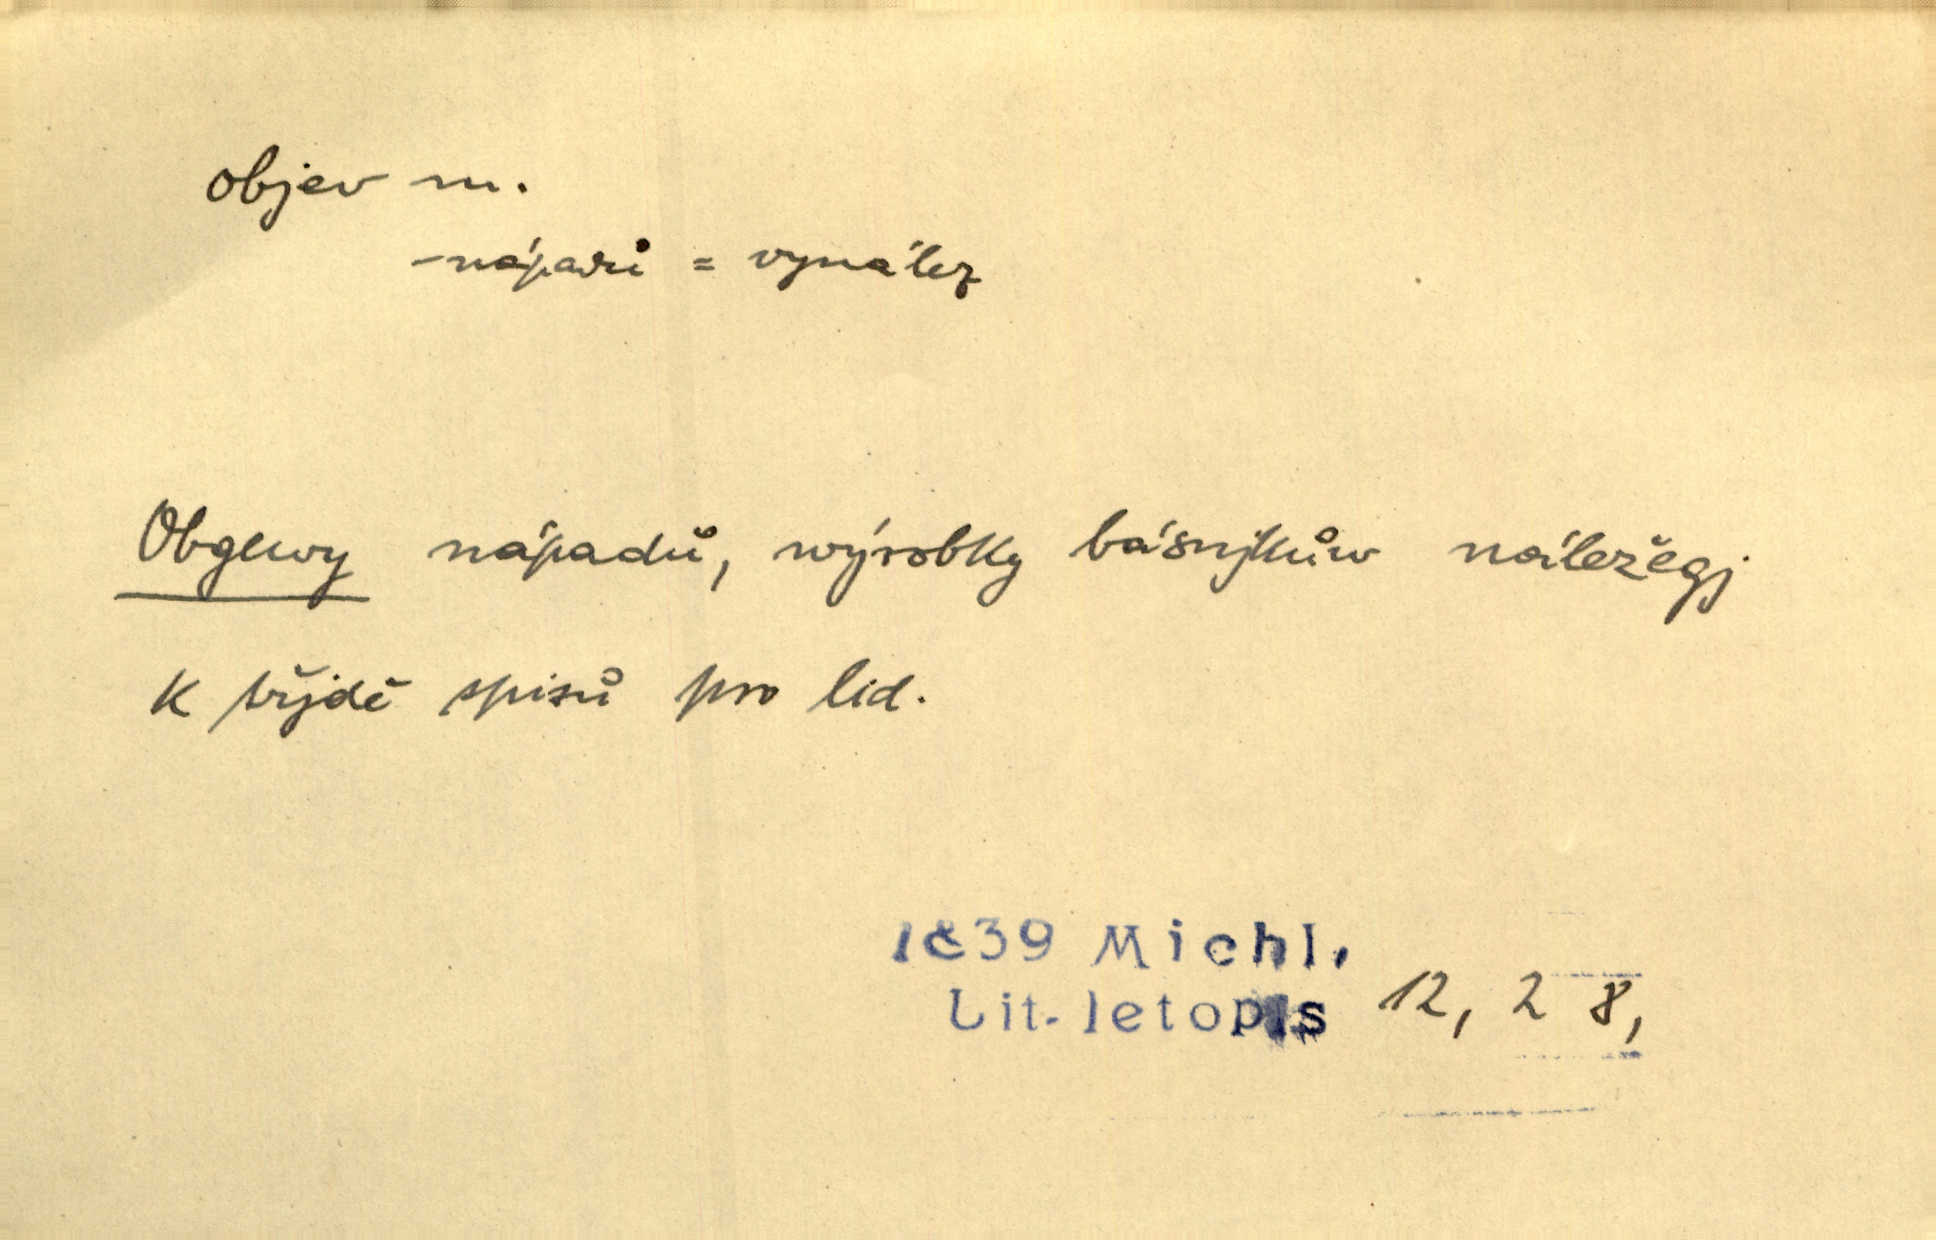 objev m.
-nápadů = vynález
Obgewy nápadů, wýrobky básnjkůw náležegj
k třjdě spisů pro lid.
1839 Michl.
Lit. letopis 12, 28,